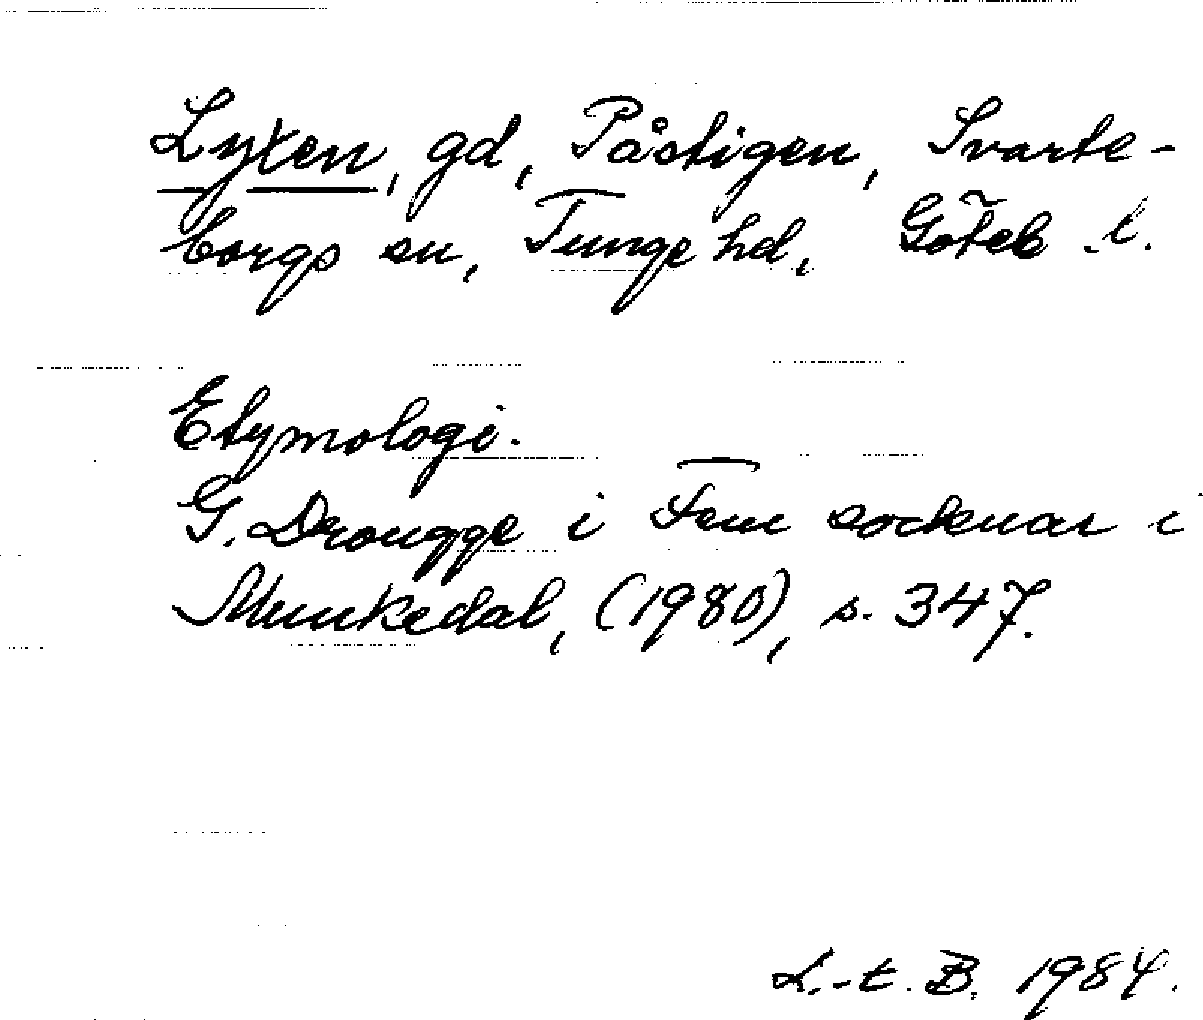 Lyxen, gd, Påstigen, Svarte-
borgs sn, Tunge hd, Göteb l.
Etymologi.
G. Drougge i Fem socknar i
Munkedal, (1980), s. 347.
L.-t. B. 1984.